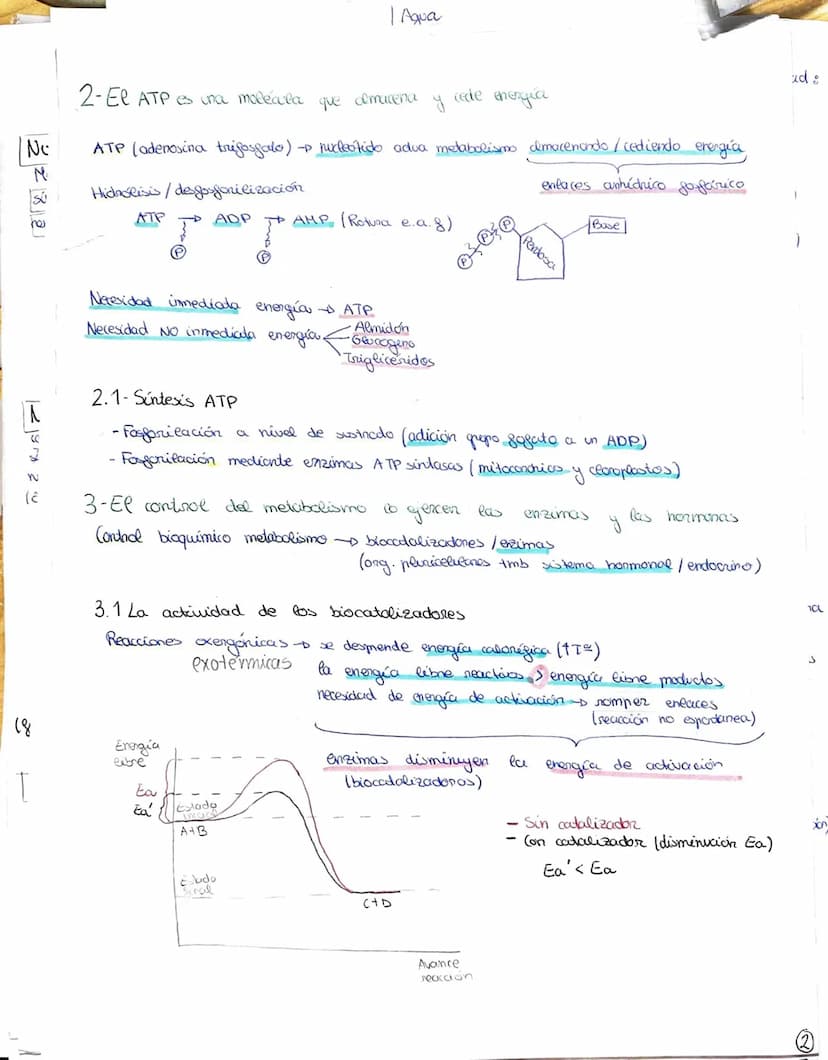 | Agua
2-El ATP es una molécula que almacena y cede energía
ATP (adenosina trifosfato) → nucleótido actua metabolismo almacenando / cediendo energía
enlaces anhídrico fosfórico
Hidrólisis / desfosforilización
ATP → ADP → AMP (Rotura e.a.f)
P P
P P P Pentosa Base
Necesidad inmediata energía → ATP
Necesidad NO inmediata energía
Almidón
Glucógeno
Triglicéridos
2.1- Síntesis ATP
- Fosforilación a nivel de sustrado (adición grupo fosfato a un ADP)
- Fosforilación mediante enzimas ATP sintasas (mitocondrias y cloroplastos)
3-El control del metabolismo lo ejercen las enzimas y las hormonas
Control bioquímico metabolismo → biocatalizadores / ezimas
(org. pluricelulares tmb sistema hormonal / endocrino)
3.1 La actividad de los biocatalizadores
Reacciones exergónicas → se desprende energía calorífica (↑Tª)
exotérmicas
la energía libre reactivos > energía libre productos
necesidad de energía de activación → romper enlaces
(reacción no espontanea)
enzimas disminuyen la energía de activación
(biocatalizadores)
Energía
libre
Ea
Ea'
Estado
inicial
A+B
Estado
final
C+D
Avance
reacción
- Sin catalizador
- Con catalizador (disminución Ea)
Ea' < Ea
2